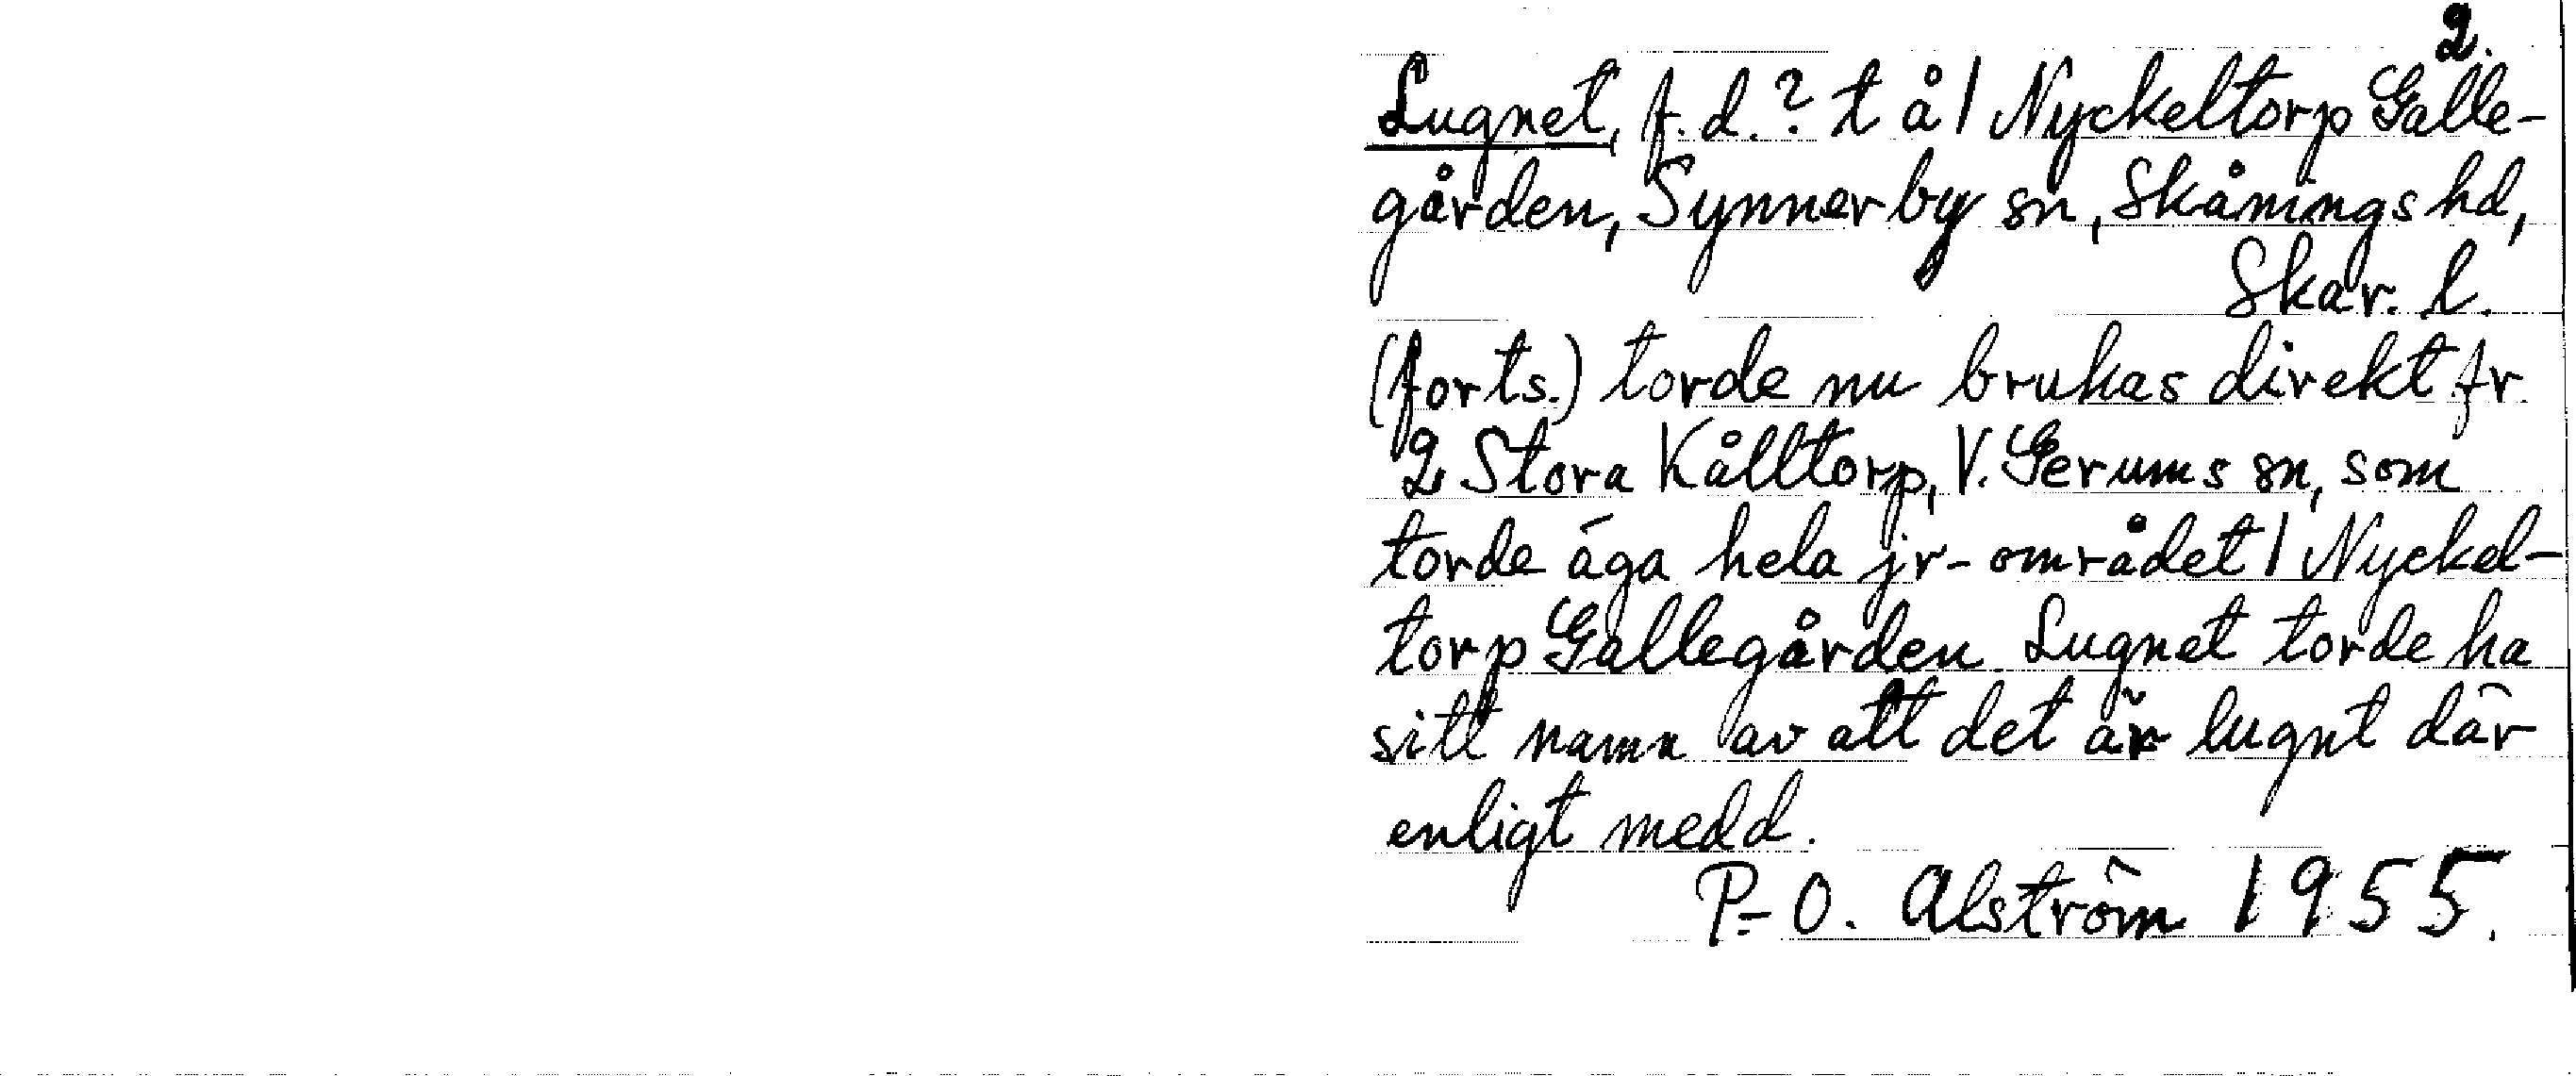 2.
Lugnet, f.d.? t å 1 Nyckeltorp Galle-
gården, Synnerby sn, Skånings hd,
Skar. l.
(forts.) torde nu brukas direkt fr
2 Stora Kålltorp, V. Gerums sn, som
torde äga hela jr-området 1 Nyckel-
torp Gallegården. Lugnet torde ha
sitt namn av att det är lugnt där
enligt medd.
P.-O. Alström 1955.